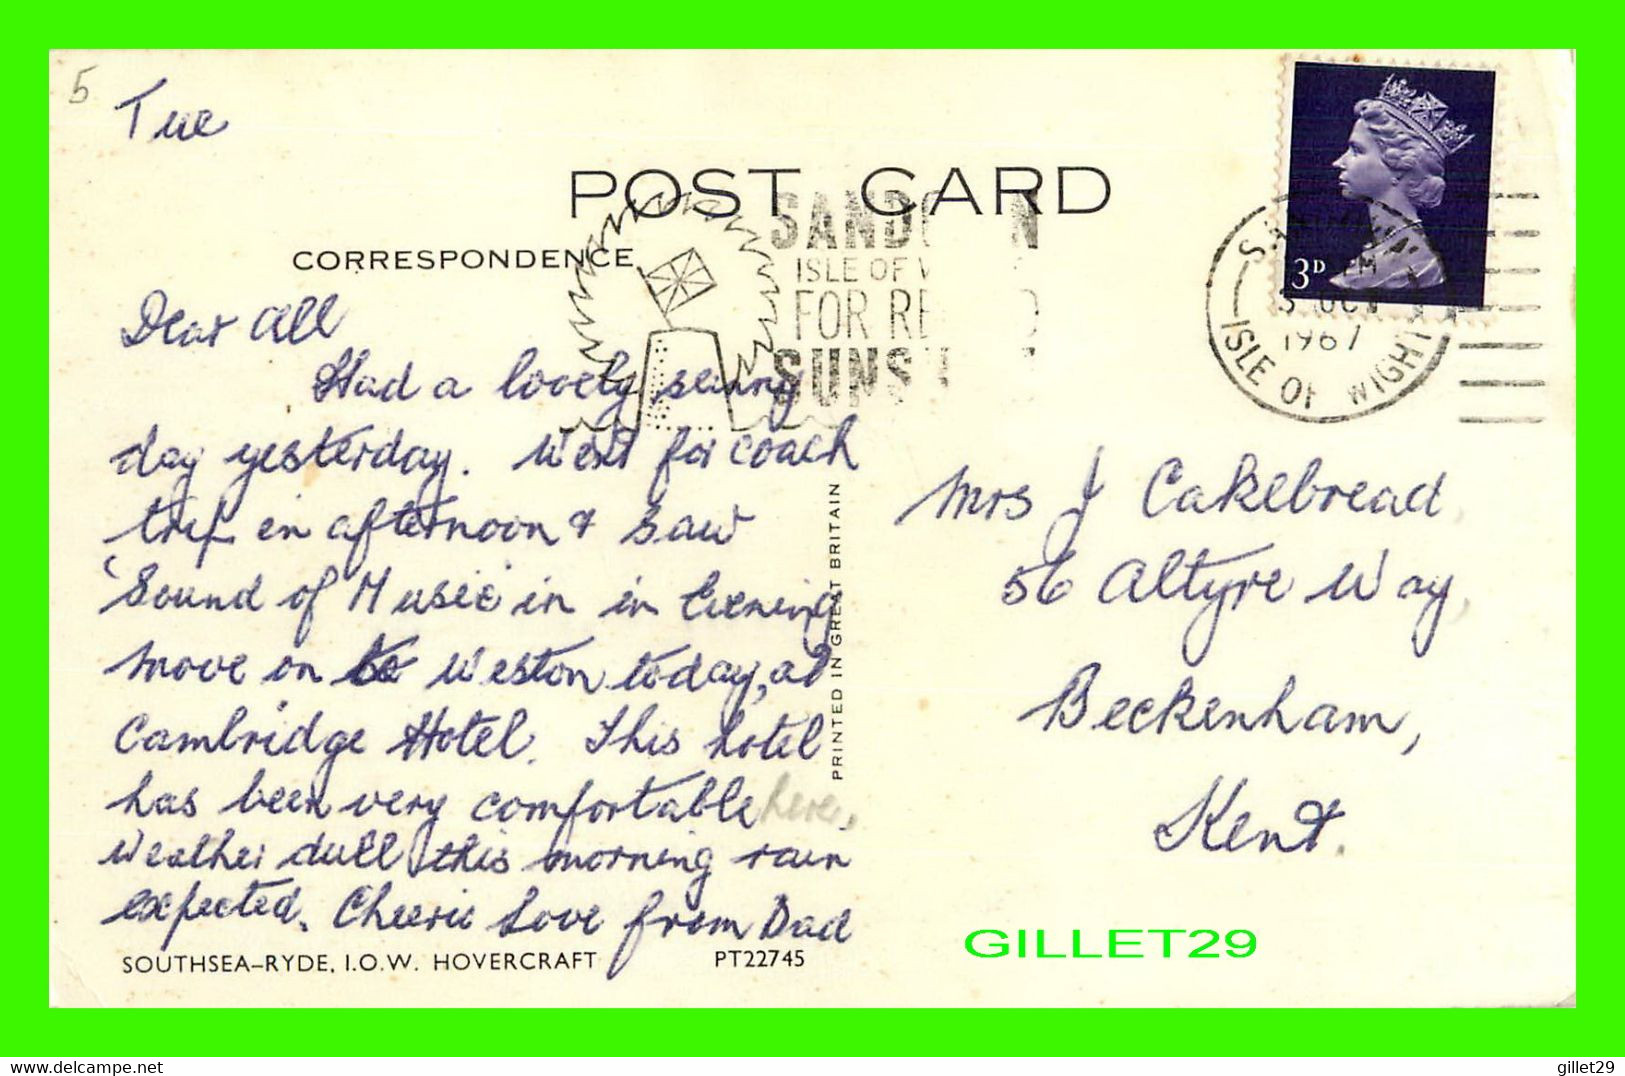 5
Tue
POST CARD
CORRESPONDENCE
SANDOWN
ISLE OF
FOR RE
SUNS
3D
OCT
1967
ISLE OF WIGHT
Dear All
Had a lovely sunny
day yesterday. Went for coach
trip in afternoon & saw
'Sound of Music' in in Evening
move on to Weston today, at
Cambridge Hotel. This hotel
has been very comfortable here.
Weather dull this morning rain
expected. Cheerie Love from Dad
PRINTED IN GREAT BRITAIN
Mrs J Cakebread
56 Altyre Way,
Beckenham,
Kent.
SOUTHSEA–RYDE, I.O.W. HOVERCRAFT PT22745
GILLET29
delcampe.net
gillet29